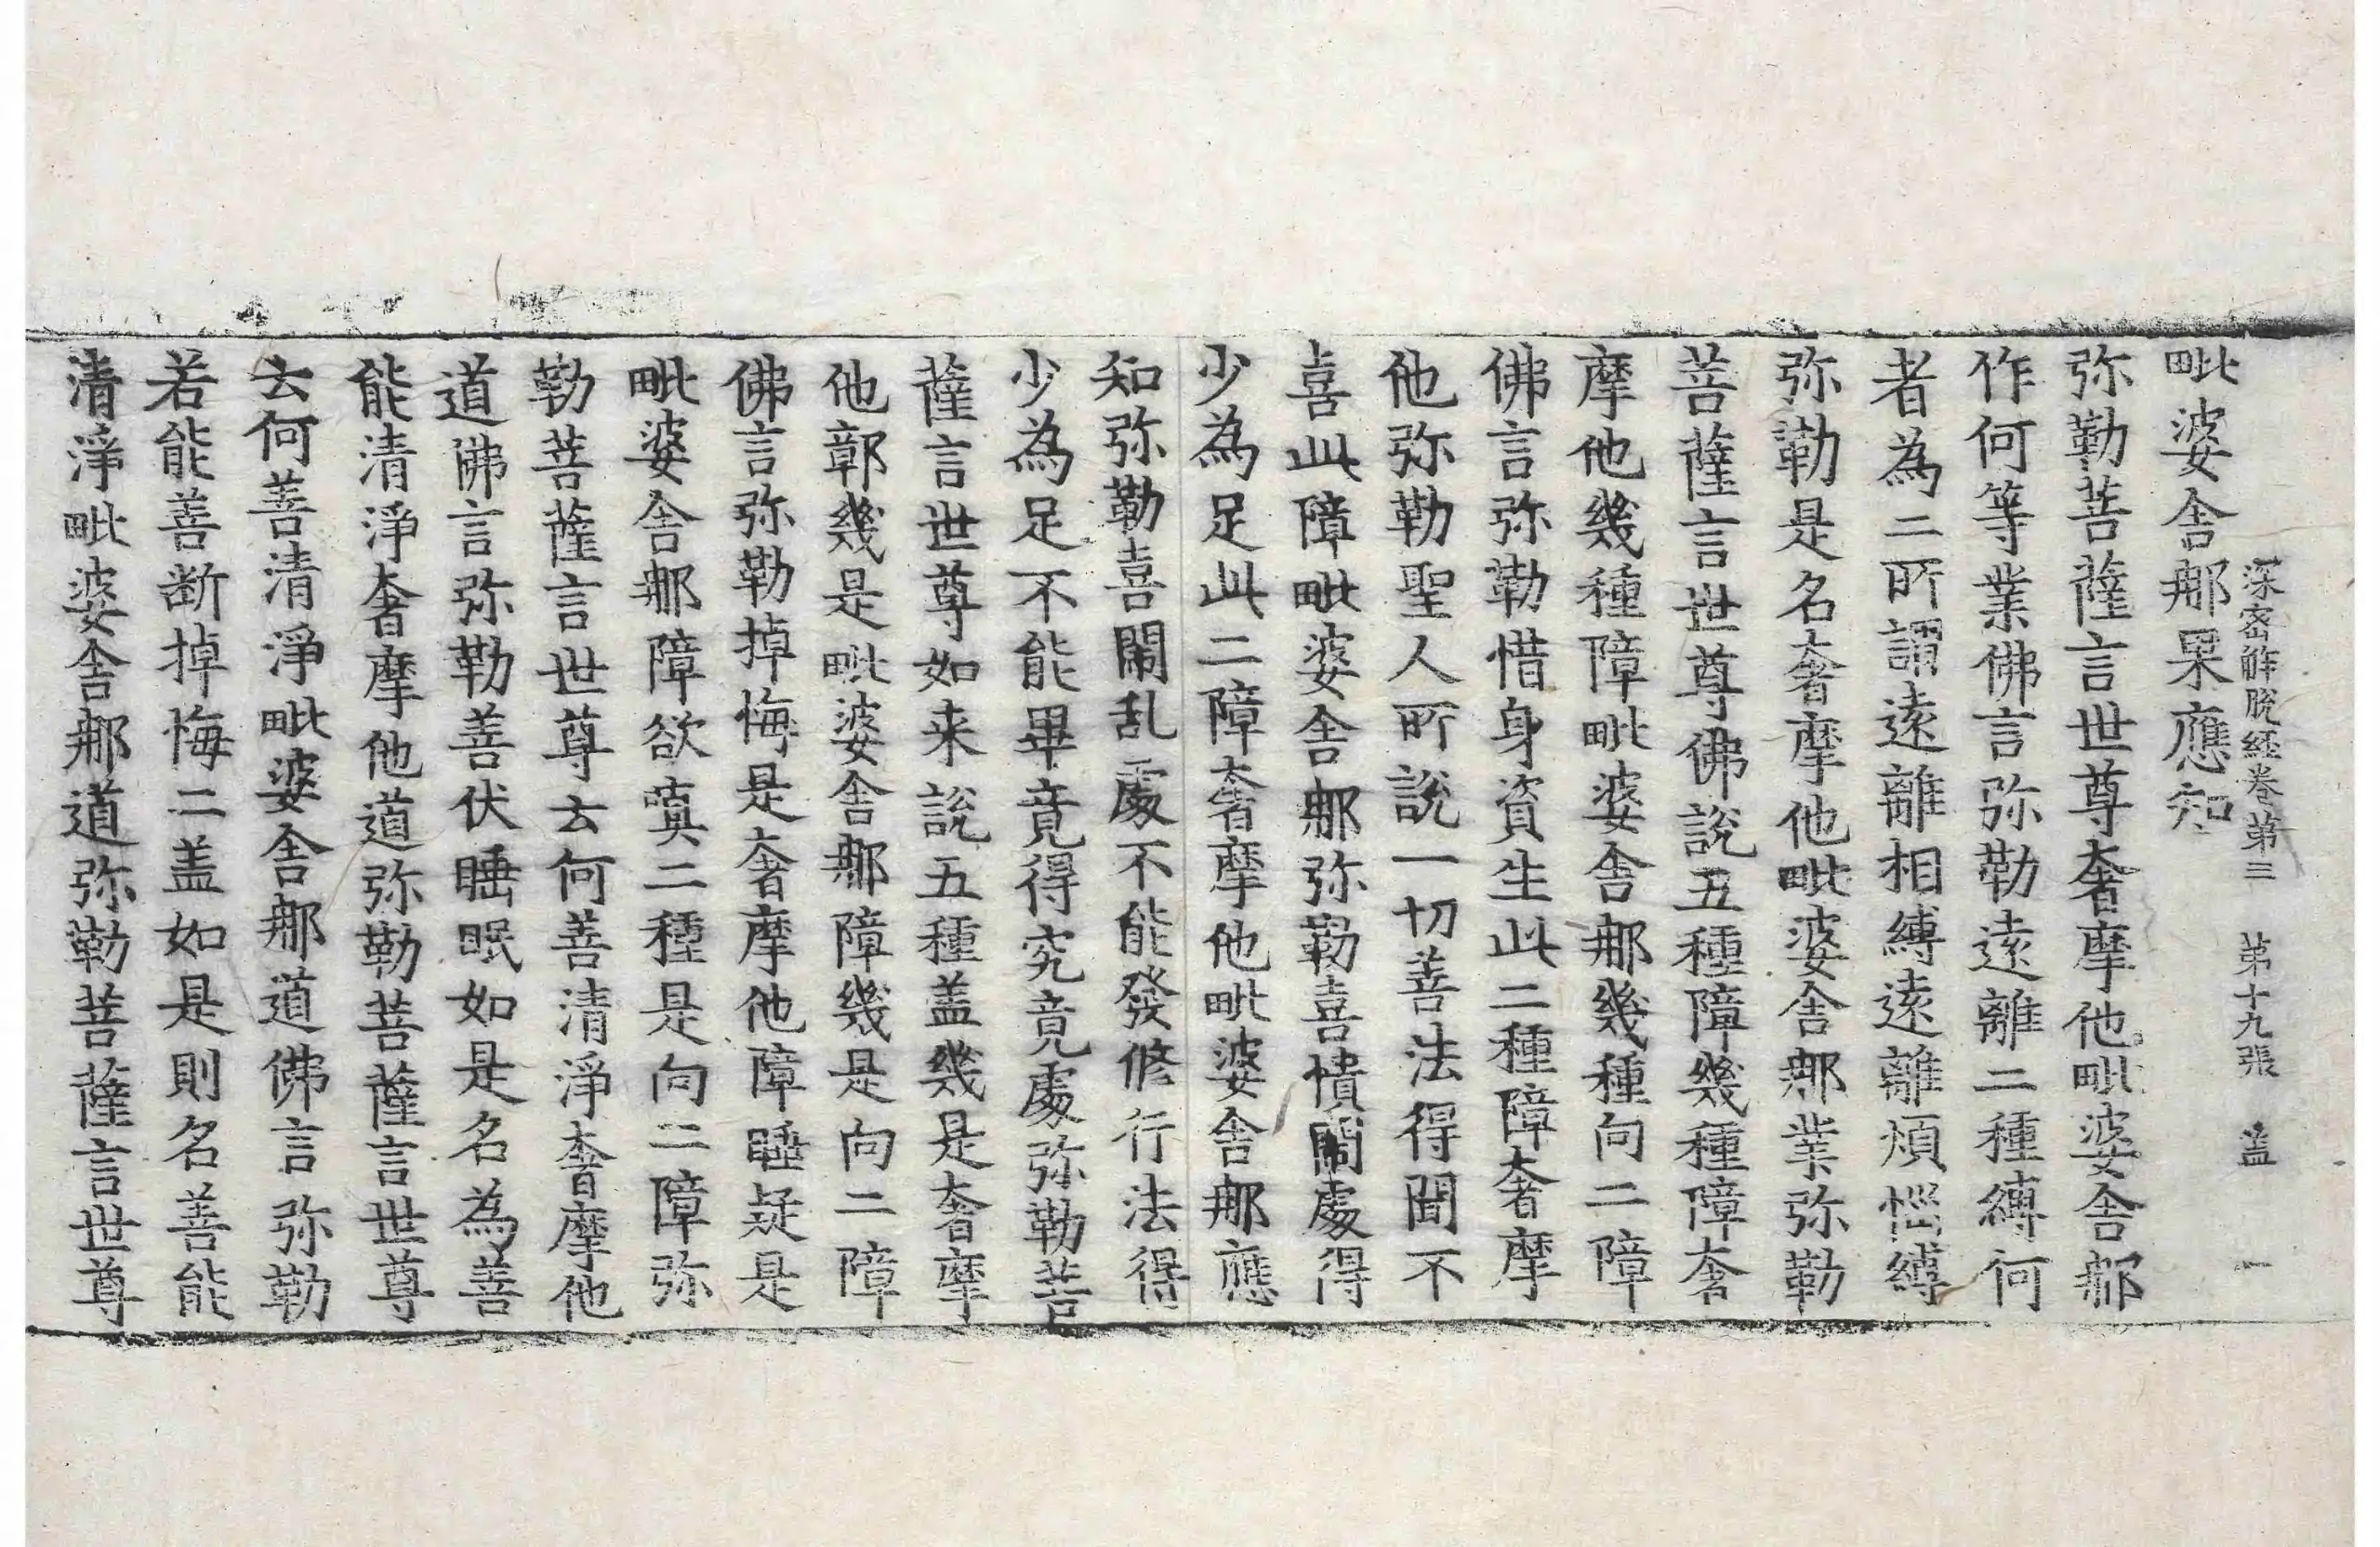 深密解脫經卷第三　第十九張　盖
毗婆舍那果應知
弥勒菩薩言世尊奢摩他毗婆舍那
作何等業佛言弥勒遠離二種縛何
者為二所謂遠離相縛遠離煩惱縛
弥勒是名奢摩他毗婆舍那業弥勒
菩薩言世尊佛說五種障幾種障奢
摩他幾種障毗婆舍那幾種向二障
佛言弥勒惜身資生此二種障奢摩
他弥勒聖人所說一切善法得聞不
喜此障毗婆舍那弥勒喜憒閙處得
少為足此二障奢摩他毗婆舍那應
知弥勒喜閙乱處不能發修行法得
少為足不能畢竟得究竟處弥勒菩
薩言世尊如来說五種盖幾是奢摩
他鄣幾是毗婆舍那障幾是向二障
佛言弥勒掉悔是奢摩他障睡疑是
毗婆舍那障欲嗔二種是向二障弥
勒菩薩言世尊云何善清淨奢摩他
道佛言弥勒善伏睡眠如是名為善
能清淨奢摩他道弥勒菩薩言世尊
云何善清淨毗婆舍那道佛言弥勒
若能善断掉悔二盖如是則名善能
清淨毗婆舍那道弥勒菩薩言世尊